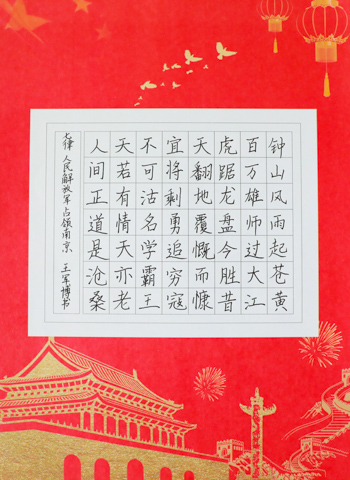 钟山风雨起苍黄
百万雄师过大江
虎踞龙盘今胜昔
天翻地覆慨而慷
宜将剩勇追穷寇
不可沽名学霸王
天若有情天亦老
人间正道是沧桑
七律 人民解放军占领南京 王军博书